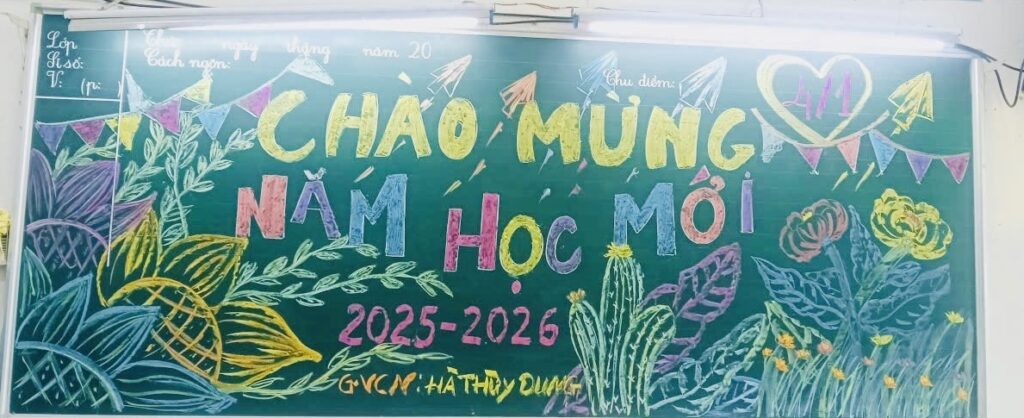 Lớp
Thứ ngày tháng năm 20
Sĩ số:
Cách ngôn:
V: (p: )
Chủ điểm:
4/1
CHÀO MỪNG
NĂM HỌC MỚI
2025-2026
GVCN: HÀ THÙY DUNG